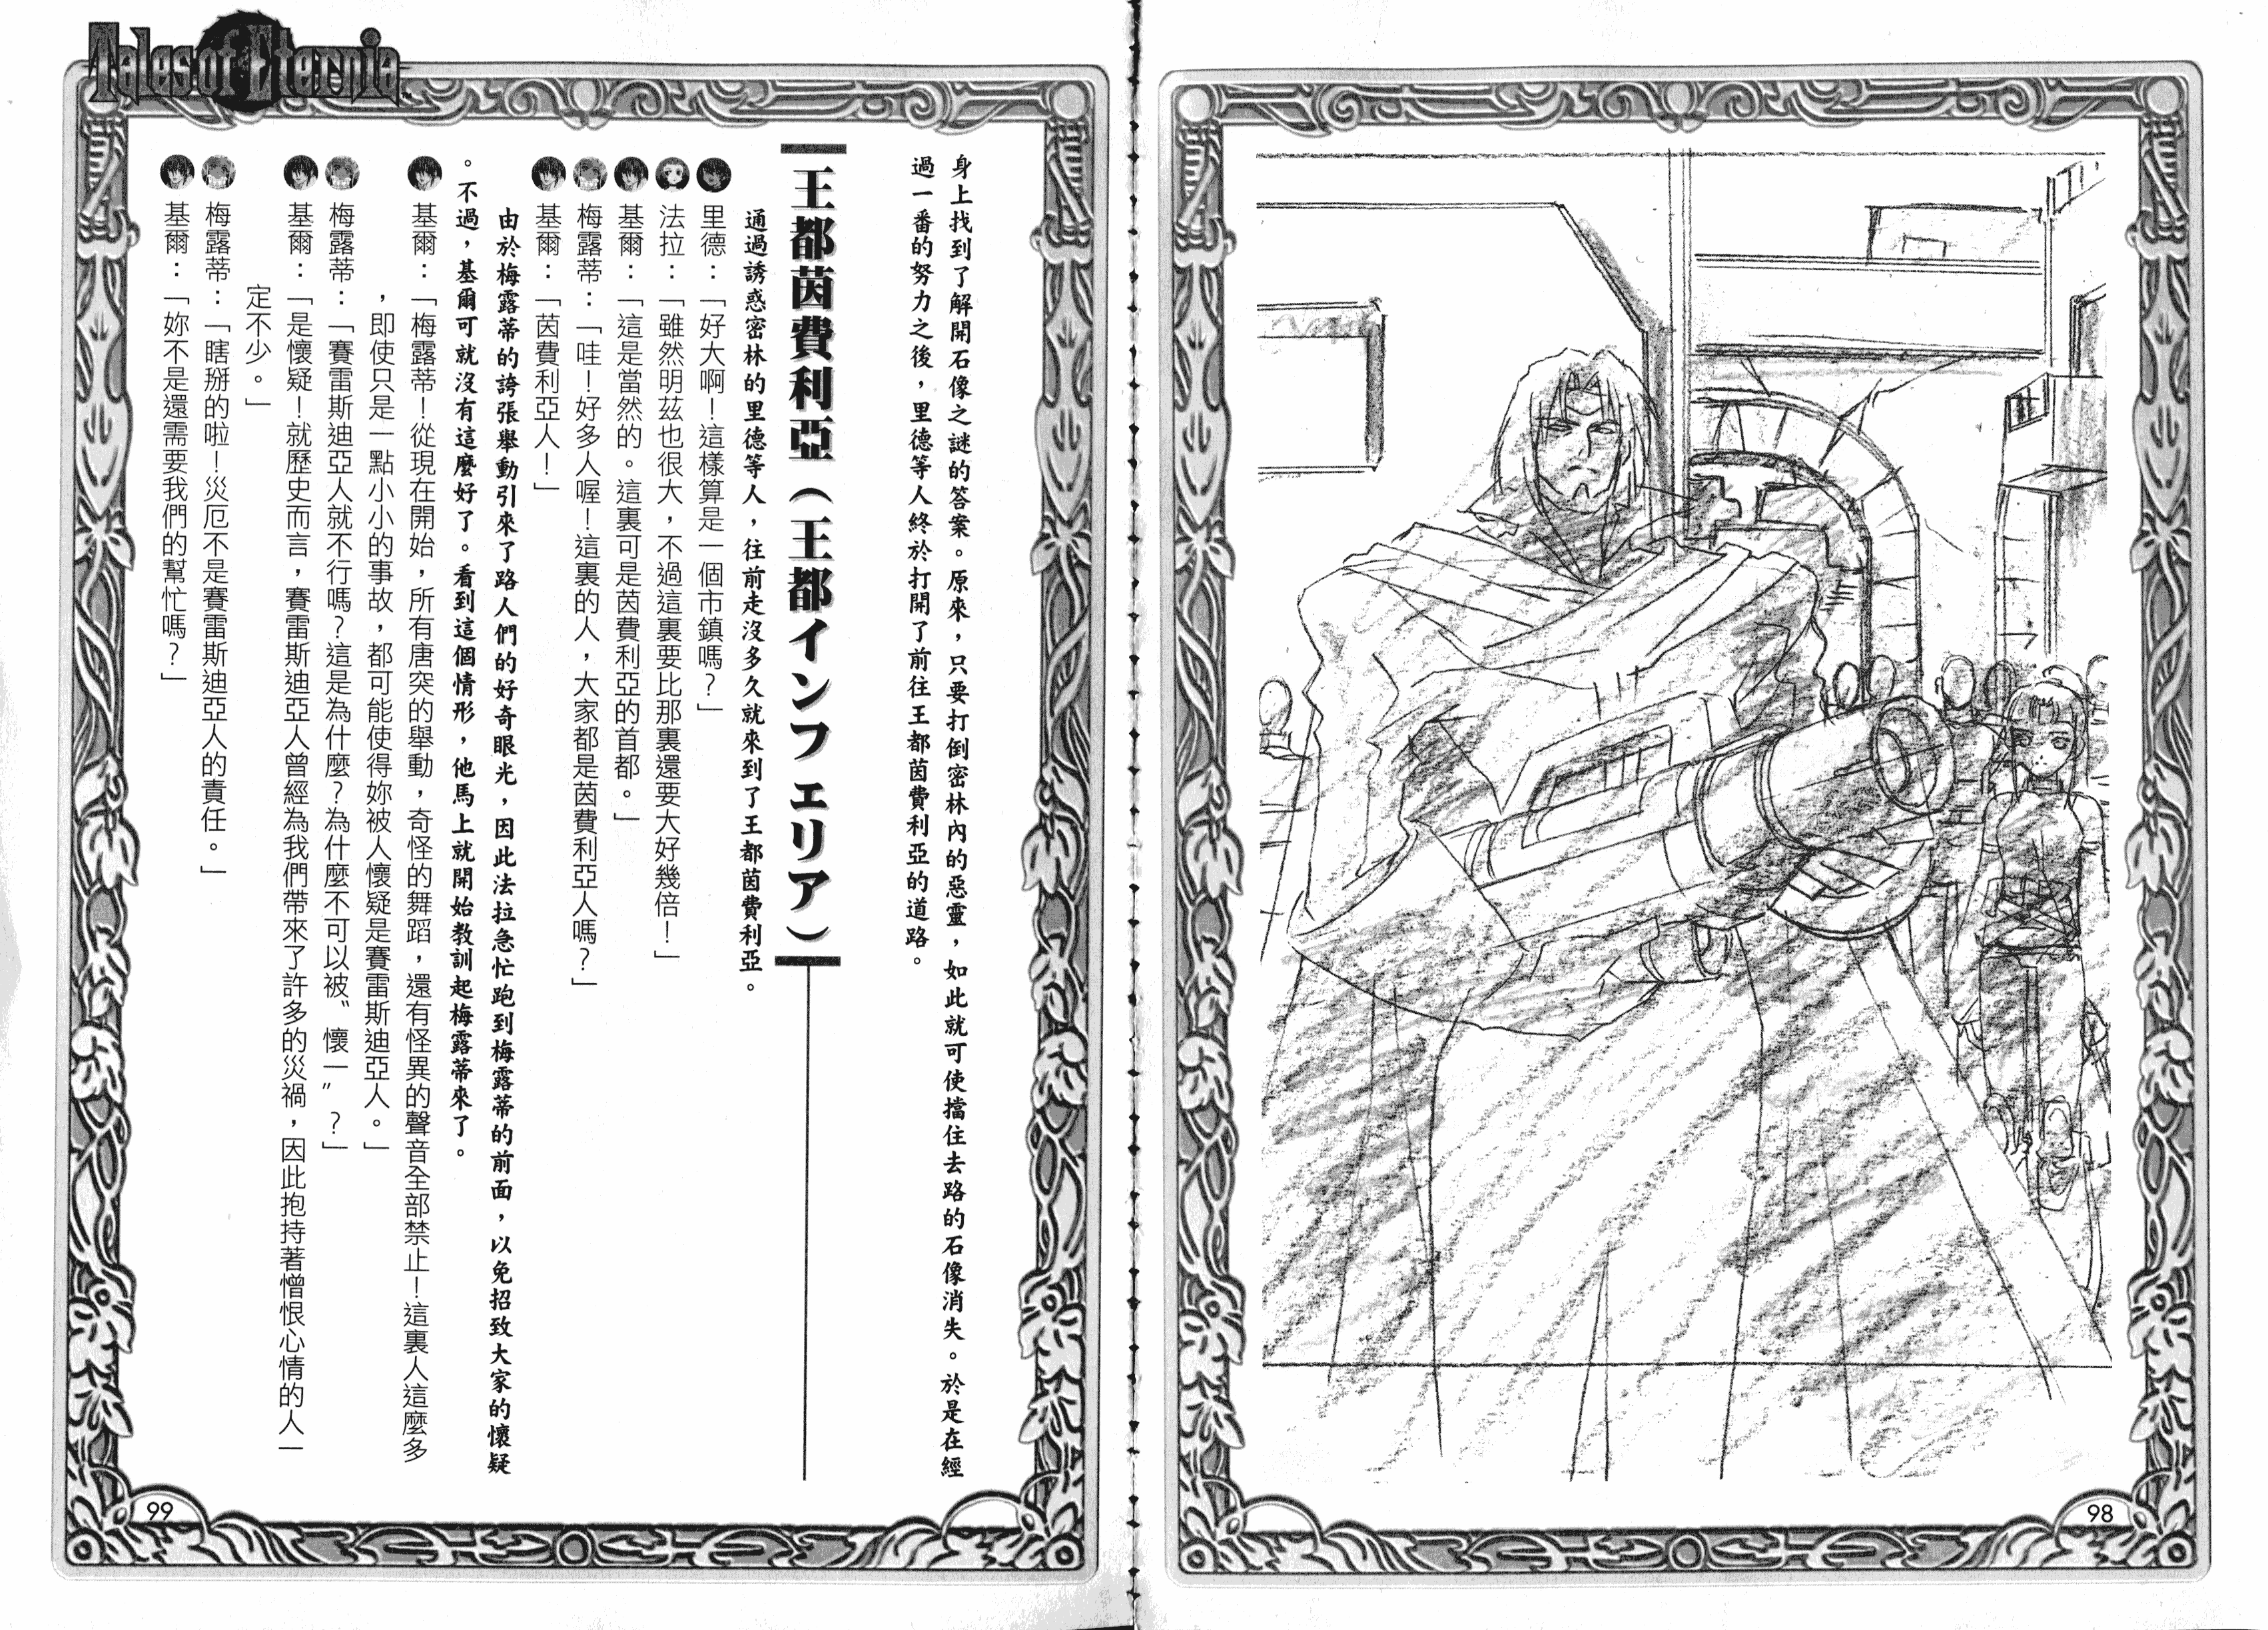 98
Tales of Eternia
身上找到了解開石像之謎的答案。原來，只要打倒密林內的惡靈，如此就可使擋住去路的石像消失。於是在經
過一番的努力之後，里德等人終於打開了前往王都茵費利亞的道路。
王都茵費利亞（王都インフェリア）
通過誘惑密林的里德等人，往前走沒多久就來到了王都茵費利亞。
里德：「好大啊！這樣算是一個市鎮嗎？」
法拉：「雖然明茲也很大，不過這裏要比那裏還要大好幾倍！」
基爾：「這是當然的。這裏可是茵費利亞的首都。」
梅露蒂：「哇！好多人喔！這裏的人，大家都是茵費利亞人嗎？」
基爾：「茵費利亞人！」
由於梅露蒂的誇張舉動引來了路人們的好奇眼光，因此法拉急忙跑到梅露蒂的前面，以免招致大家的懷疑
。不過，基爾可就沒有這麼好了。看到這個情形，他馬上就開始教訓起梅露蒂來了。
基爾：「梅露蒂！從現在開始，所有唐突的舉動，奇怪的舞蹈，還有怪異的聲音全部禁止！這裏人這麼多
，即使只是一點小小的事故，都可能使得妳被人懷疑是賽雷斯迪亞人。」
梅露蒂：「賽雷斯迪亞人就不行嗎？這是為什麼？為什麼不可以被〝懷一〞？」
基爾：「是懷疑！就歷史而言，賽雷斯迪亞人曾經為我們帶來了許多的災禍，因此抱持著憎恨心情的人一
定不少。」
梅露蒂：「瞎掰的啦！災厄不是賽雷斯迪亞人的責任。」
基爾：「妳不是還需要我們的幫忙嗎？」
99